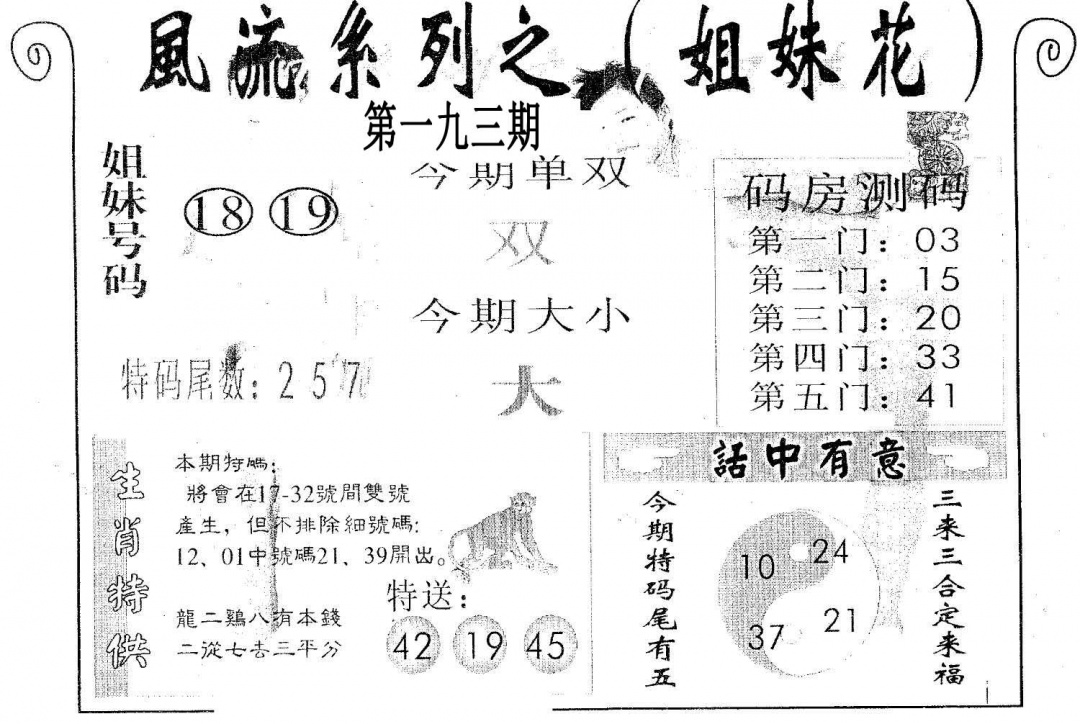 風流系列之（姐妹花）
第一九三期
姐妹号码
18 19
今期单双
双
今期大小
大
特码尾数：257
码房测码
第一门：03
第二门：15
第三门：20
第四门：33
第五门：41
生肖特供
本期特碼：
將會在17-32號間雙號
產生，但不排除細號碼:
12、01中號碼21、39開出。
龍二鷄八有本錢
二從七去三平分
特送：
42 19 45
話中有意
今期特码尾有五
10 24
37 21
三来三合定来福